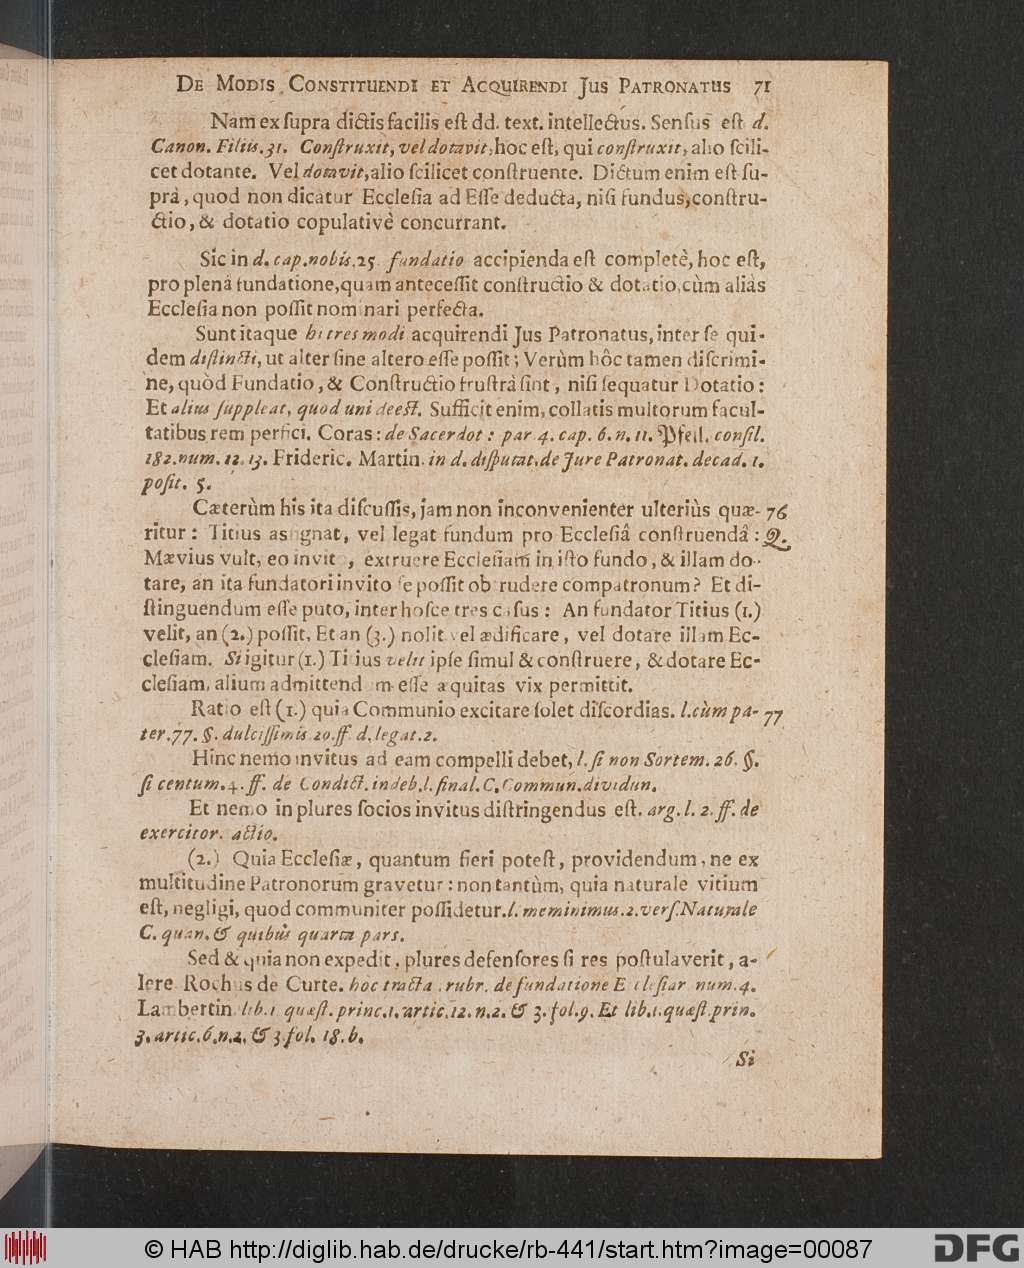 De Modis Constituendi et Acquirendi Jus Patronatus 71
Nam ex ſupra dictis facilis eſt dd. text. intellectus. Senſus eſt d.
Canon. Filiis. 31. Conſtruxit, vel dotavit, hoc eſt, qui conſtruxit, alio ſcili-
cet dotante. Vel dotavit, alio ſcilicet conſtruente. Dictum enim eſt ſu-
prà, quod non dicatur Eccleſia ad Eſſe deducta, niſi fundus, conſtru-
ctio, & dotatio copulativè concurrant.
Sic in d. cap. nobis. 25. fundatio accipienda eſt completè, hoc eſt,
pro plenâ fundatione, quam anteceſſit conſtructio & dotatio, cùm aliàs
Eccleſia non poſſit nominari perfecta.
Sunt itaque hi tres modi acquirendi Jus Patronatus, inter ſe qui-
dem diſtincti, ut alter ſine altero eſſe poſſit; Verùm hôc tamen diſcrimi-
ne, quòd Fundatio, & Conſtructio fruſtrà ſint, niſi ſequatur Dotatio:
Et alius ſuppleat, quod uni deeſt. Sufficit enim, collatis multorum facul-
tatibus rem perfici. Coras: de Sacerdot: par. 4. cap. 6. n. 11. Pfeil. conſil.
182. num. 12. 13. Frideric. Martin. in d. diſputat. de Jure Patronat. decad. 1.
poſit. 5.
Cæterùm his ita diſcuſſis, jam non inconvenienter ulteriùs quæ- 76
ritur: Titius aſsignat, vel legat fundum pro Eccleſiâ conſtruendâ: Q.
Mævius vult, eo invito, extruere Eccleſiam in iſto fundo, & illam do-
tare, an ita fundatori invito ſe poſſit obtrudere compatronum? Et di-
ſtinguendum eſſe puto, inter hoſce tres caſus: An fundator Titius (1.)
velit, an (2.) poſſit, Et an (3.) nolit vel ædificare, vel dotare illam Ec-
cleſiam. Si igitur (1.) Titius velit ipſe ſimul & conſtruere, & dotare Ec-
cleſiam, alium admittendum eſſe æquitas vix permittit.
Ratio eſt (1.) quia Communio excitare ſolet diſcordias. l. cùm pa- 77
ter. 77. §. dulciſſimis. 20. ff. d. legat. 2.
Hinc nemo invitus ad eam compelli debet, l. ſi non Sortem. 26. §.
ſi centum. 4. ff. de Condict. indeb. l. final. C. Commun. dividun.
Et nemo in plures ſocios invitus diſtringendus eſt. arg. l. 2. ff. de
exercitor. actio.
(2.) Quia Eccleſiæ, quantum fieri poteſt, providendum, ne ex
multitudine Patronorum gravetur: non tantùm, quia naturale vitium
eſt, negligi, quod communiter poſſidetur. l. meminimus. 2. verſ. Naturale
C. quan. & quibus quarta pars.
Sed & quia non expedit, plures defenſores ſi res poſtulaverit, a-
lere. Rochus de Curte. hoc tracta. rubr. de fundatione Eccleſiar. num. 4.
Lambertin. lib. 1. quæſt. princ. 1. artic. 12. n. 2. & 3. fol. 9. Et lib. 1. quæſt. prin.
3. artic. 6. n. 2. & 3. fol. 18. b.
Si
© HAB http://diglib.hab.de/drucke/rb-441/start.htm?image=00087
DFG